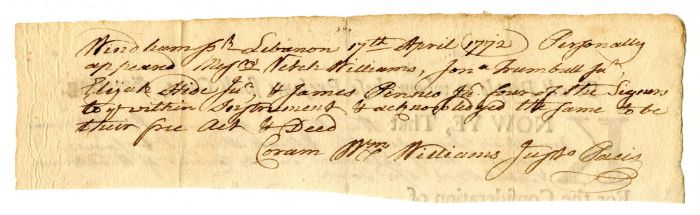 Windham ss. Lebanon 17th April 1772 Personally
appeared Messrs Veach Williams, Jona Trumbull Junr
Elijah Hide Junr, & James Pinneo Jr. four of the Signers
to ye within Instrument & acknowledged the same to be
their free Act & Deed
Coram Wm Williams Justo Pacis
NOW YE, That
For the Consideration of